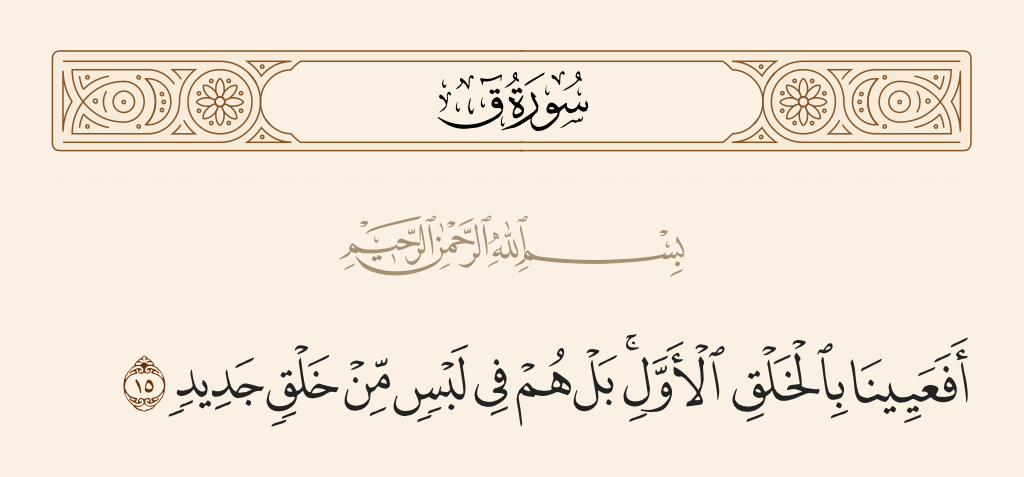 سُورَةُ قٓ
بِسْمِ ٱللَّهِ ٱلرَّحْمَٰنِ ٱلرَّحِيمِ
أَفَعَيِينَا بِٱلْخَلْقِ ٱلْأَوَّلِ ۚ بَلْ هُمْ فِى لَبْسٍ مِّنْ خَلْقٍ جَدِيدٍ ١٥